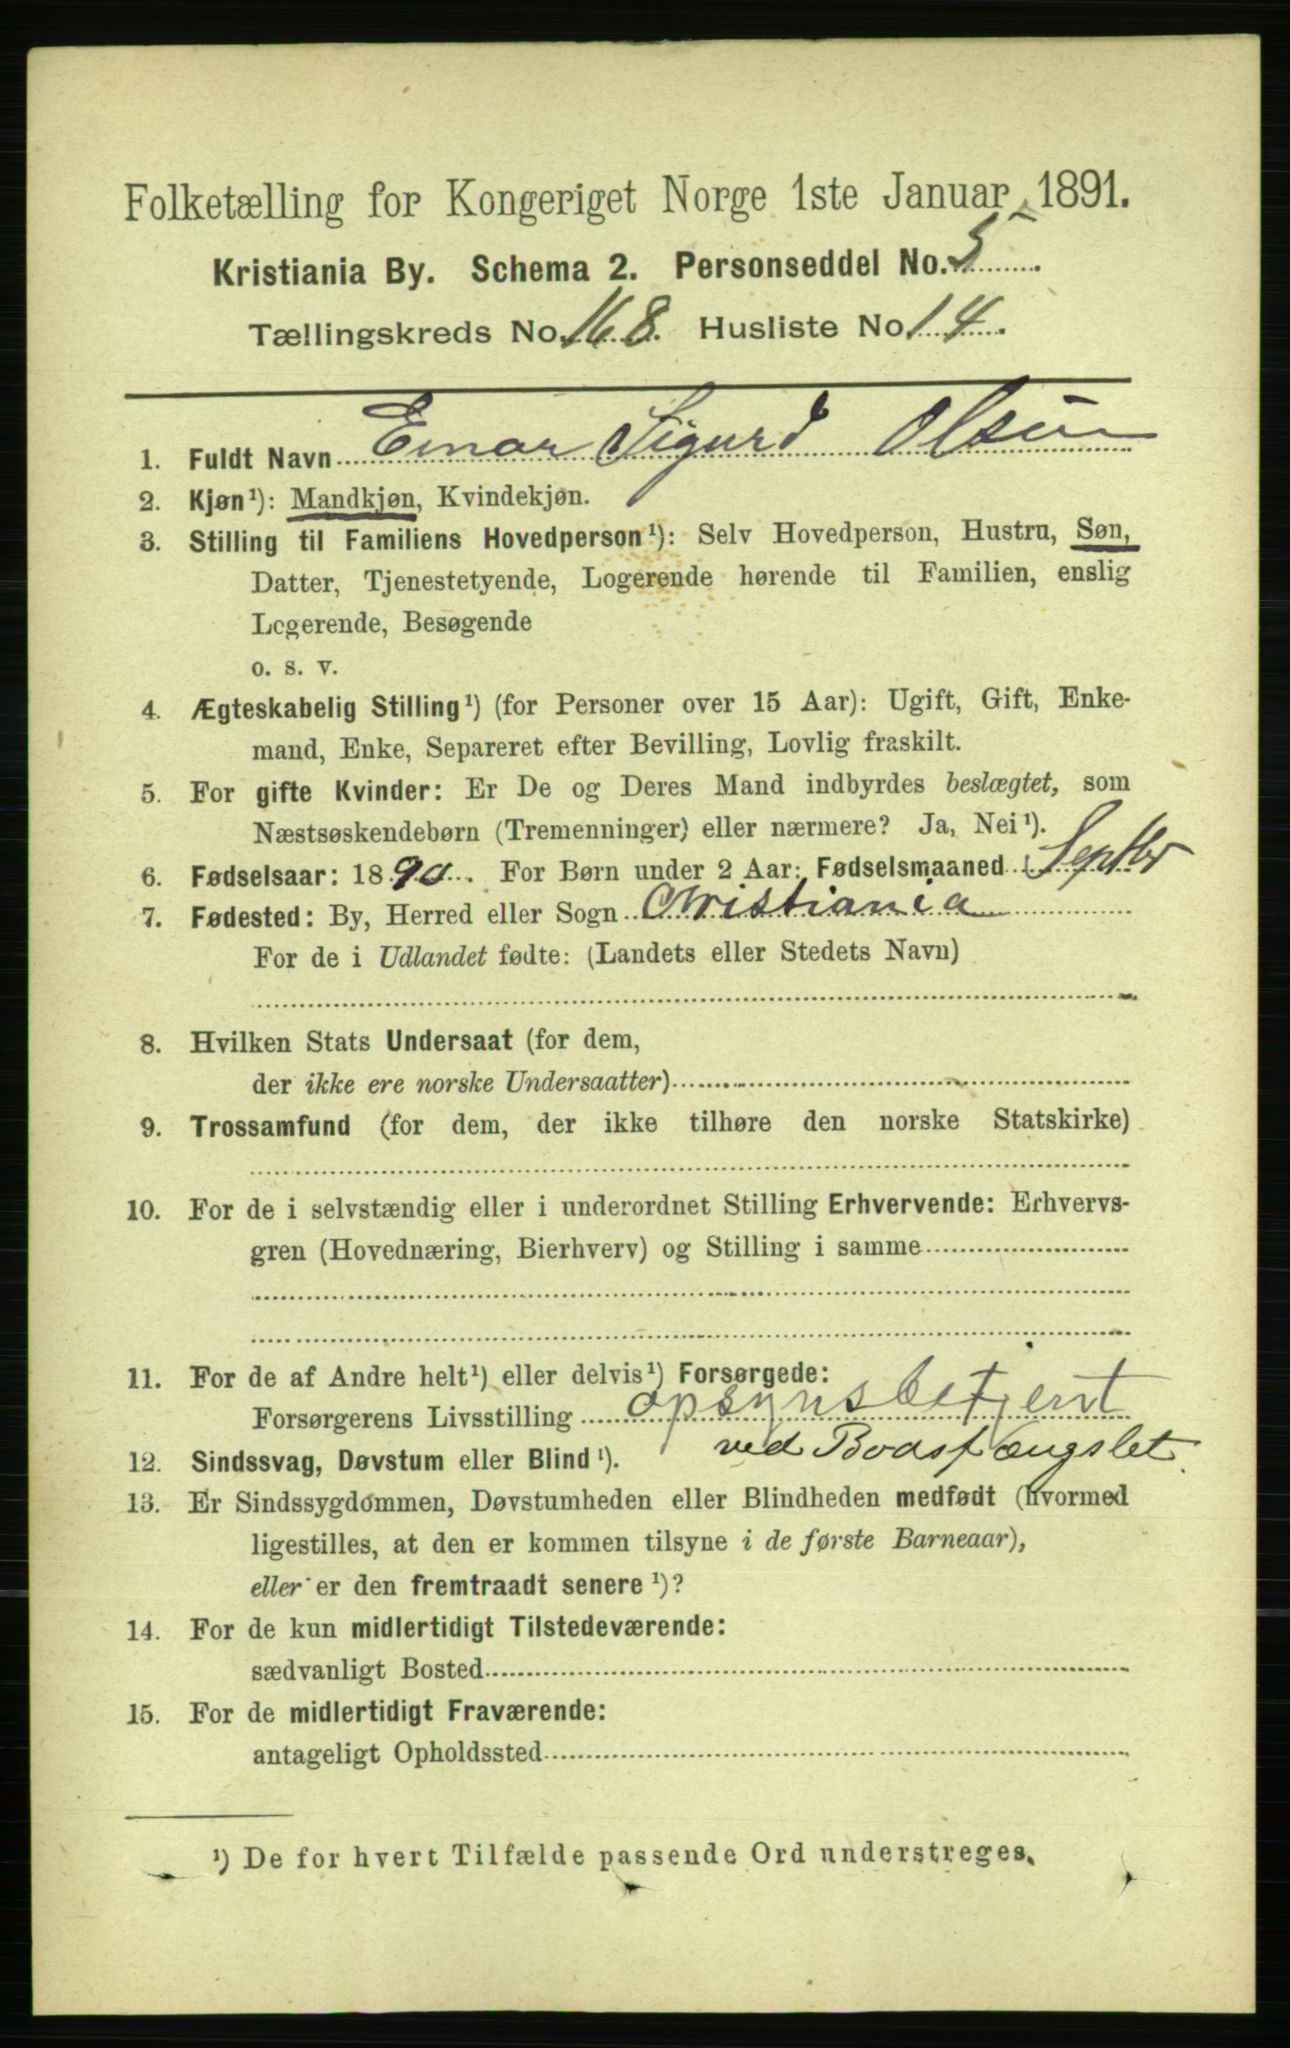 Folketælling for Kongeriget Norge 1ste Januar 1891.
Kristiania By. Schema 2. Personseddel No. 5
Tællingskreds No. 168. Husliste No. 14.
1. Fuldt Navn Einar Sigurd Olsen
2. Kjøn¹): Mandkjøn, Kvindekjøn.
3. Stilling til Familiens Hovedperson¹): Selv Hovedperson, Hustru, Søn,
Datter, Tjenestetyende, Logerende hørende til Familien, enslig
Logerende, Besøgende
o. s. v.
4. Ægteskabelig Stilling¹) (for Personer over 15 Aar): Ugift, Gift, Enke-
mand, Enke, Separeret efter Bevilling, Lovlig fraskilt.
5. For gifte Kvinder: Er De og Deres Mand indbyrdes beslægtet, som
Næstsøskendebørn (Tremenninger) eller nærmere? Ja, Nei¹).
6. Fødselsaar: 1890. For Børn under 2 Aar: Fødselsmaaned Septbr
7. Fødested: By, Herred eller Sogn Christiania
For de i Udlandet fødte: (Landets eller Stedets Navn)
8. Hvilken Stats Undersaat (for dem,
der ikke ere norske Undersaatter)
9. Trossamfund (for dem, der ikke tilhøre den norske Statskirke)
10. For de i selvstændig eller i underordnet Stilling Erhvervende: Erhvervs-
gren (Hovednæring, Bierhverv) og Stilling i samme
11. For de af Andre helt¹) eller delvis¹) Forsørgede:
Forsørgerens Livsstilling opsynsbetjent
ved Bodsfængslet.
12. Sindssvag, Døvstum eller Blind¹).
13. Er Sindssygdommen, Døvstumheden eller Blindheden medfødt (hvormed
ligestilles, at den er kommen tilsyne i de første Barneaar),
eller er den fremtraadt senere¹)?
14. For de kun midlertidigt Tilstedeværende:
sædvanligt Bosted
15. For de midlertidigt Fraværende:
antageligt Opholdssted
¹) De for hvert Tilfælde passende Ord understreges.